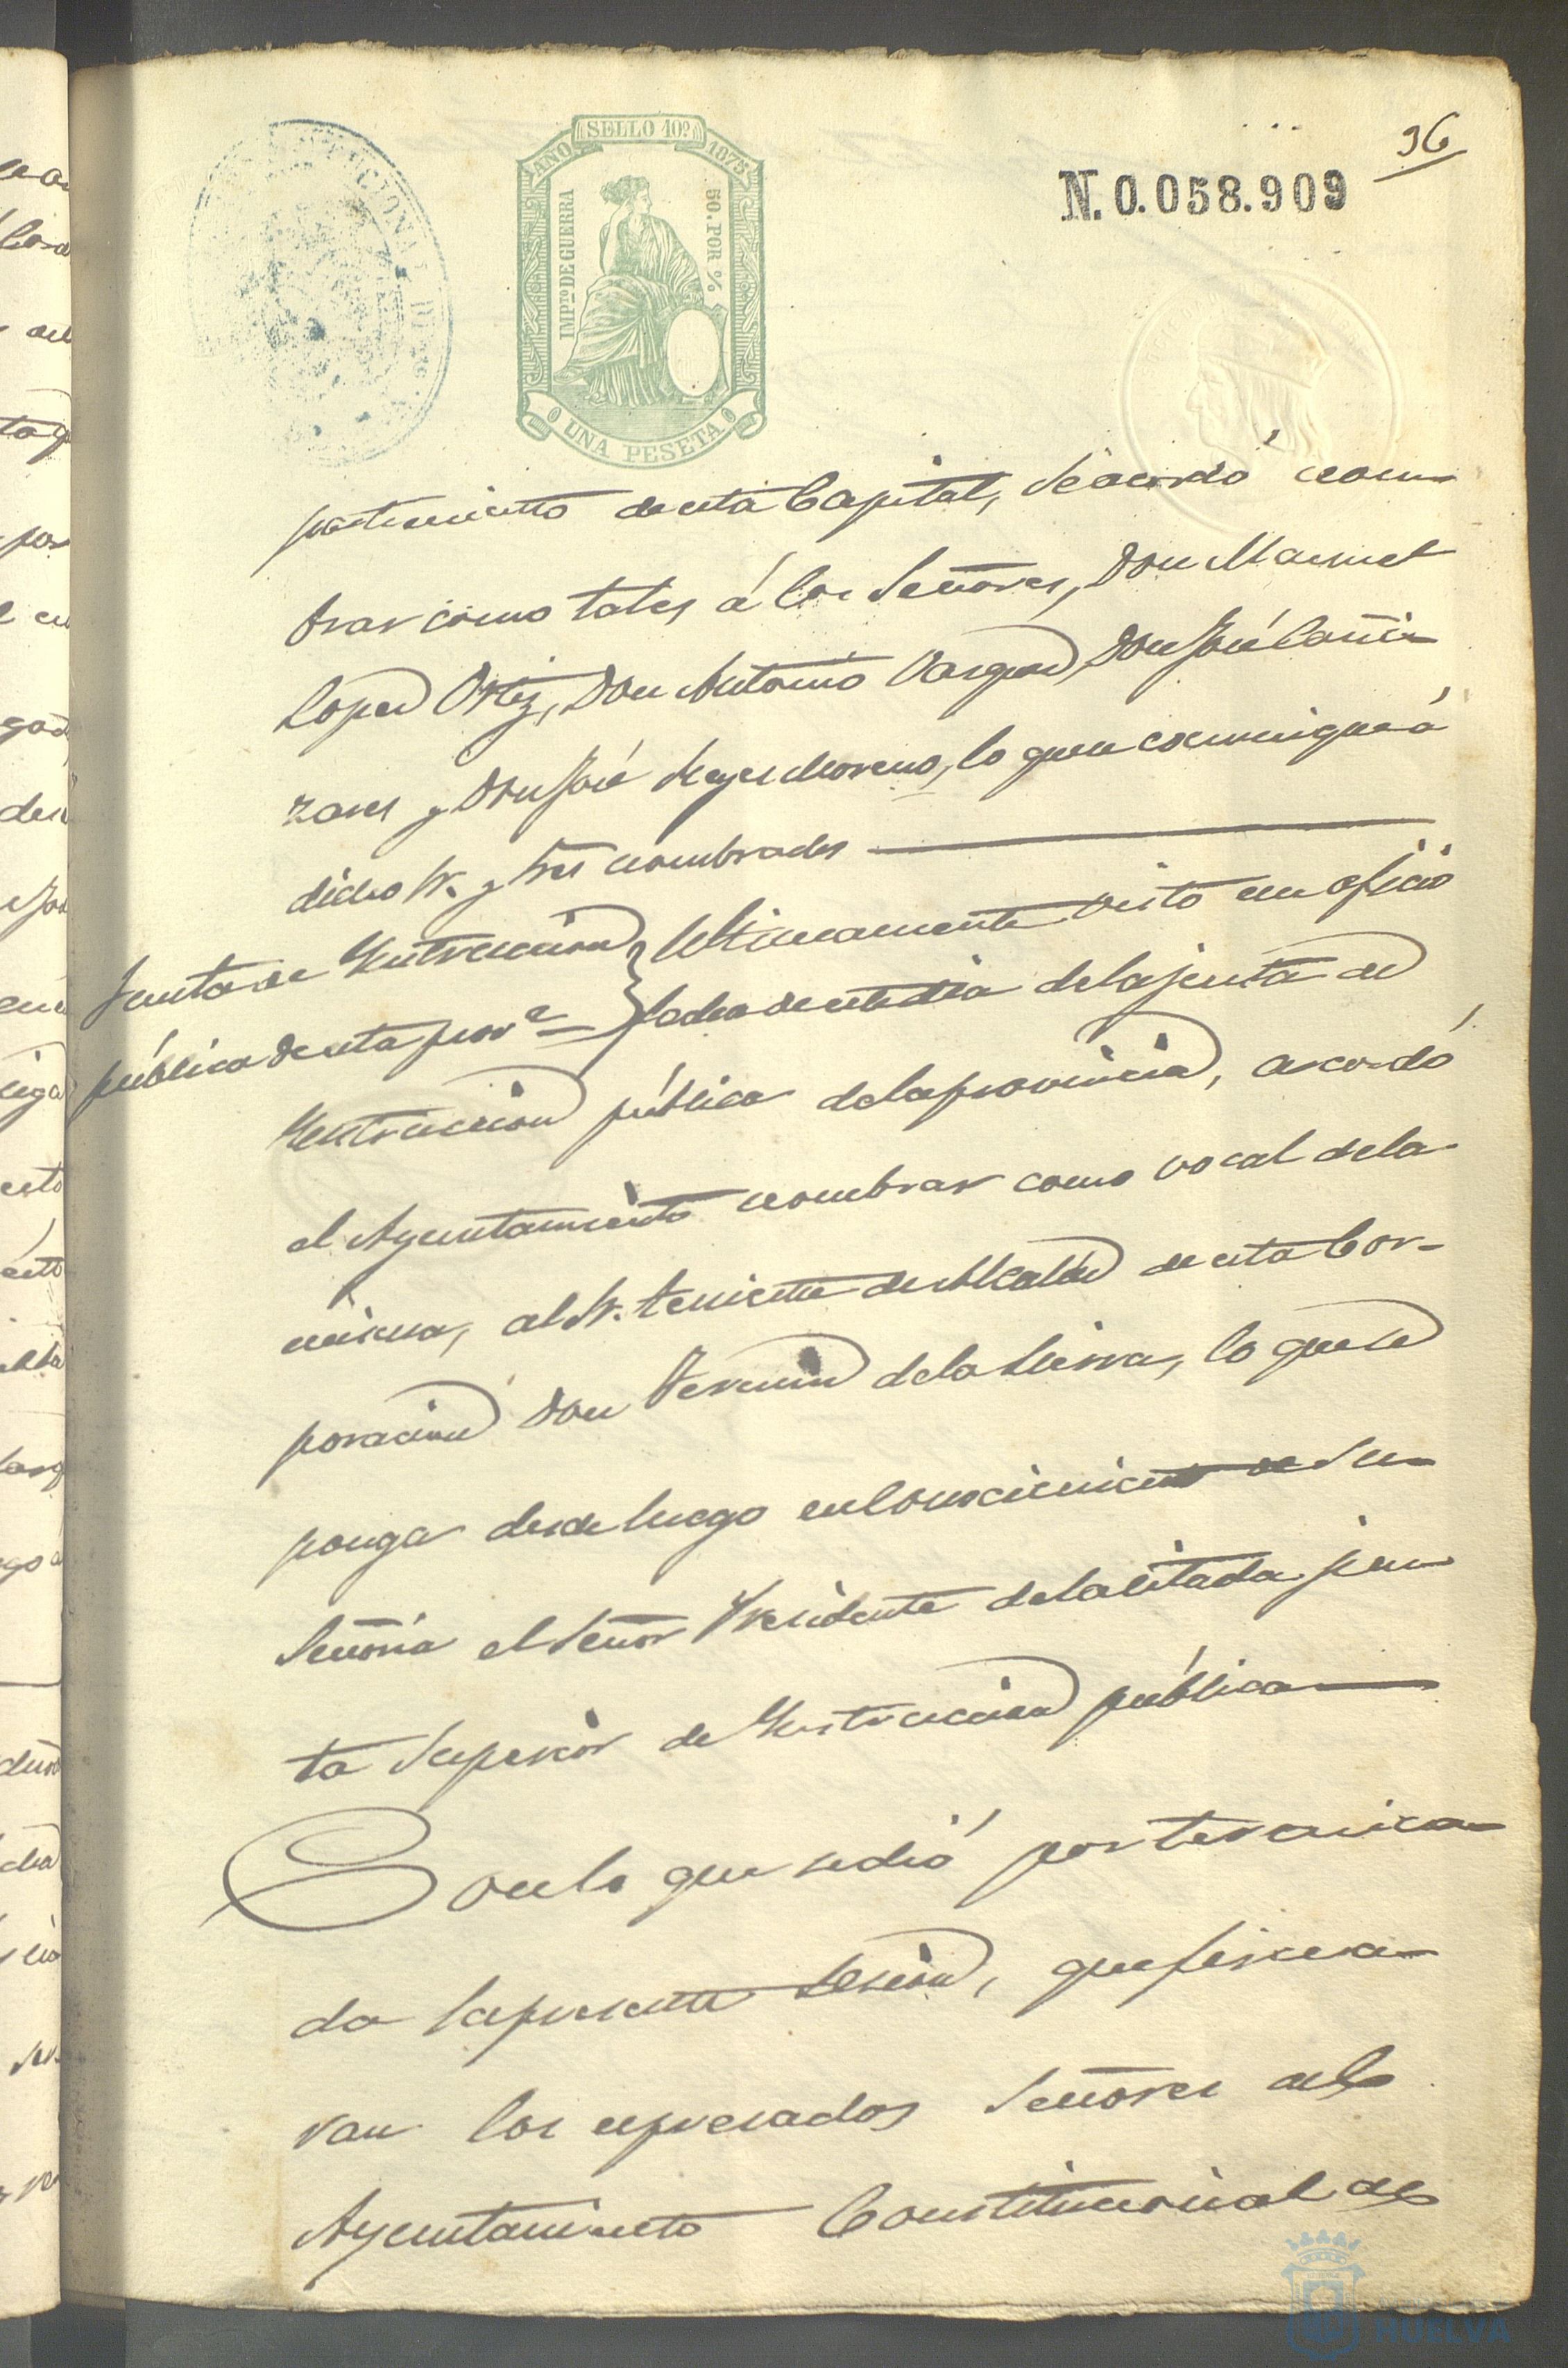 96
SELLO 10º
AÑO 1875
IMPTO DE GUERRA
50. POR %
UNA PESETA
N. 0.058.909
partimiento de esta Capital, se acordó nom-
brar como tales á los Señores, Don Manuel
Lopez Ortiz, Don Antonio Vazquez, Don José Cañi-
zares y Don José Reyes Moreno, lo que se comunique á
dicho Sr. y tres nombrados
Junta de Instruccion
pública de esta prova
Ultimamente visto un oficio
fecha de este dia de la junta de
Instruccion pública de la provincia, acordó
el Ayuntamiento nombrar como vocal de la
misma, al Sr. teniente de Alcalde de esta Cor-
poracion Don Fermin de la Sierra, lo que se
ponga desde luego en conocimiento de Su
Señoría el Señor Presidente de la citada jun
ta Superior de Instruccion pública
Con lo que se dió por termina-
da la presente Sesion, que firma-
ran los expresados Señores del
Ayuntamiento Constitucional de
HUELVA